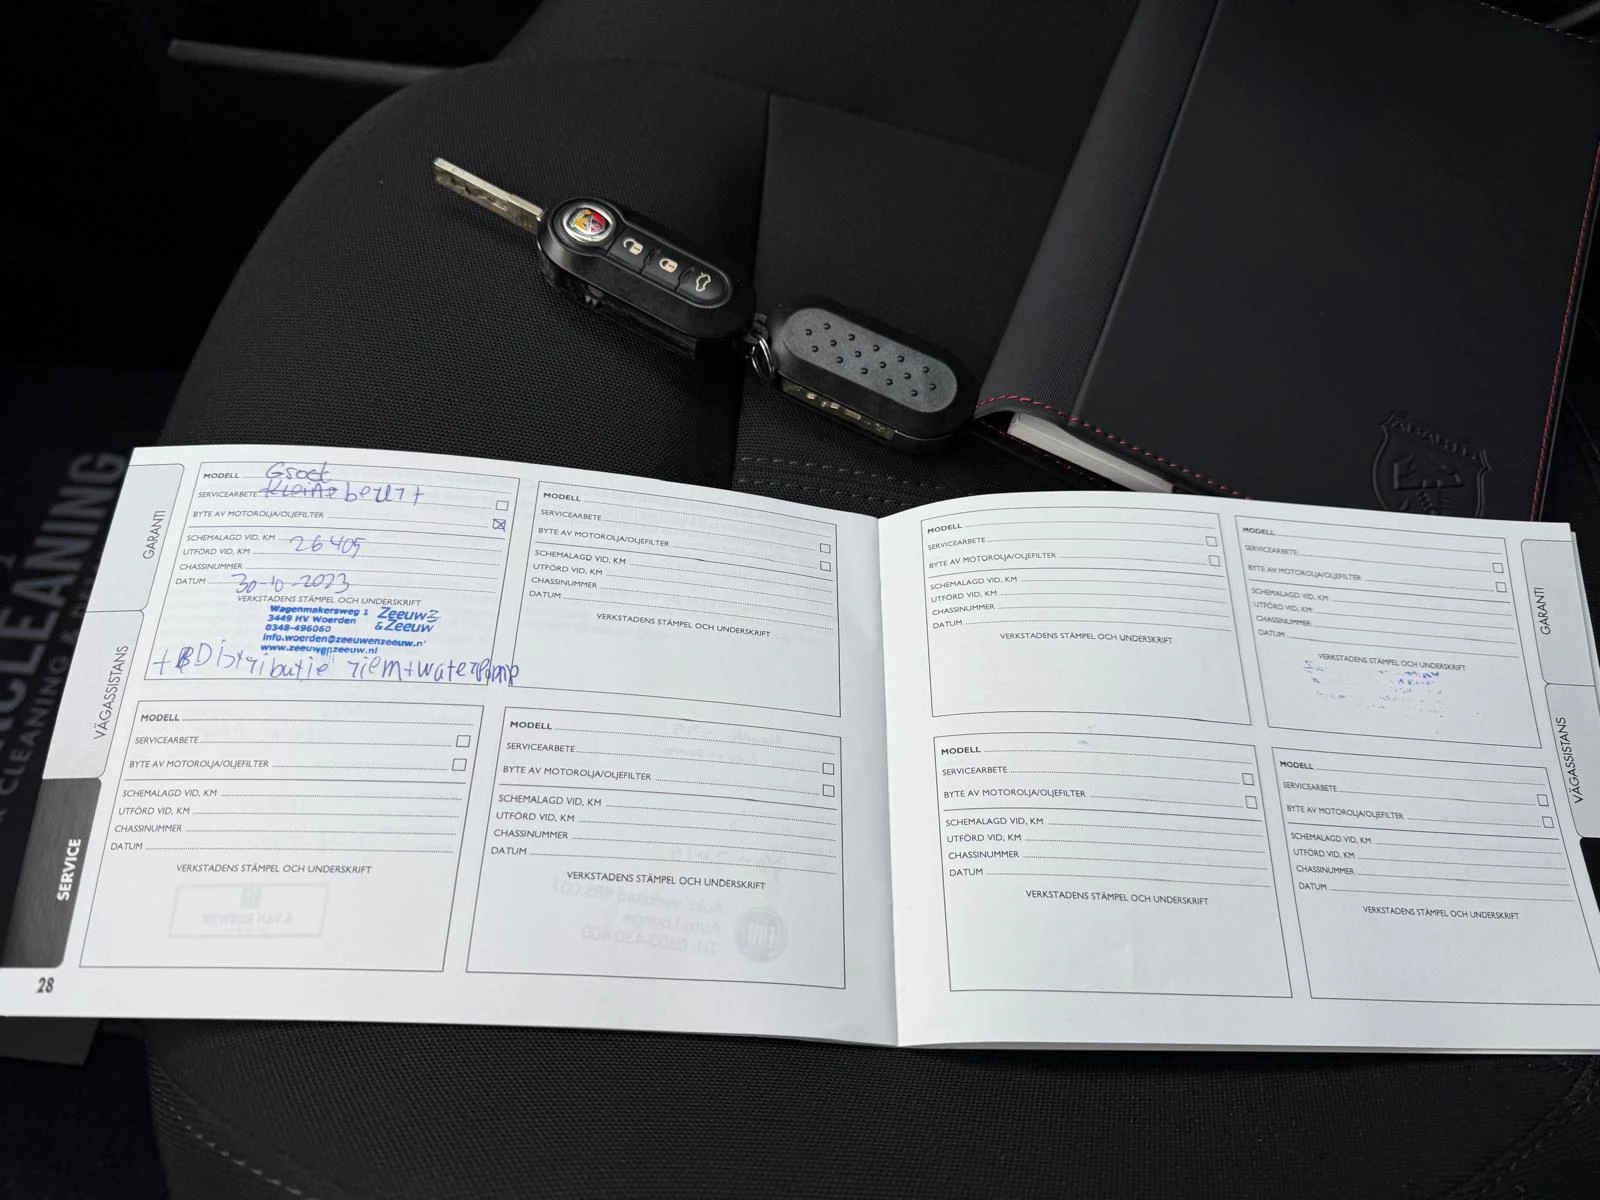 ABARTH
CLEANING
CLEANING
GARANTI
VÄGASSISTANS
SERVICE
28
MODELL Groot
SERVICEARBETE Kleine beurt
BYTE AV MOTOROLJA/OLJEFILTER
SCHEMALAGD VID, KM 26405
UTFÖRD VID, KM
CHASSINUMMER
DATUM 30-10-2023
VERKSTADENS STÄMPEL OCH UNDERSKRIFT
Wagenmakersweg 1
3449 HV Woerden
0348-496060
Zeeuw
& Zeeuw
info.woerden@zeeuwenzeeuw.nl
www.zeeuwenzeeuw.nl
+ Distributie riem+waterpomp
MODELL
SERVICEARBETE
BYTE AV MOTOROLJA/OLJEFILTER
SCHEMALAGD VID, KM
UTFÖRD VID, KM
CHASSINUMMER
DATUM
VERKSTADENS STÄMPEL OCH UNDERSKRIFT
MODELL
SERVICEARBETE
BYTE AV MOTOROLJA/OLJEFILTER
SCHEMALAGD VID, KM
UTFÖRD VID, KM
CHASSINUMMER
DATUM
VERKSTADENS STÄMPEL OCH UNDERSKRIFT
MODELL
SERVICEARBETE
BYTE AV MOTOROLJA/OLJEFILTER
SCHEMALAGD VID, KM
UTFÖRD VID, KM
CHASSINUMMER
DATUM
VERKSTADENS STÄMPEL OCH UNDERSKRIFT
MODELL
SERVICEARBETE
BYTE AV MOTOROLJA/OLJEFILTER
SCHEMALAGD VID, KM
UTFÖRD VID, KM
CHASSINUMMER
DATUM
VERKSTADENS STÄMPEL OCH UNDERSKRIFT
MODELL
SERVICEARBETE
BYTE AV MOTOROLJA/OLJEFILTER
SCHEMALAGD VID, KM
UTFÖRD VID, KM
CHASSINUMMER
DATUM
VERKSTADENS STÄMPEL OCH UNDERSKRIFT
MODELL
SERVICEARBETE
BYTE AV MOTOROLJA/OLJEFILTER
SCHEMALAGD VID, KM
UTFÖRD VID, KM
CHASSINUMMER
DATUM
VERKSTADENS STÄMPEL OCH UNDERSKRIFT
MODELL
SERVICEARBETE
BYTE AV MOTOROLJA/OLJEFILTER
SCHEMALAGD VID, KM
UTFÖRD VID, KM
CHASSINUMMER
DATUM
VERKSTADENS STÄMPEL OCH UNDERSKRIFT
GARANTI
VÄGASSISTANS